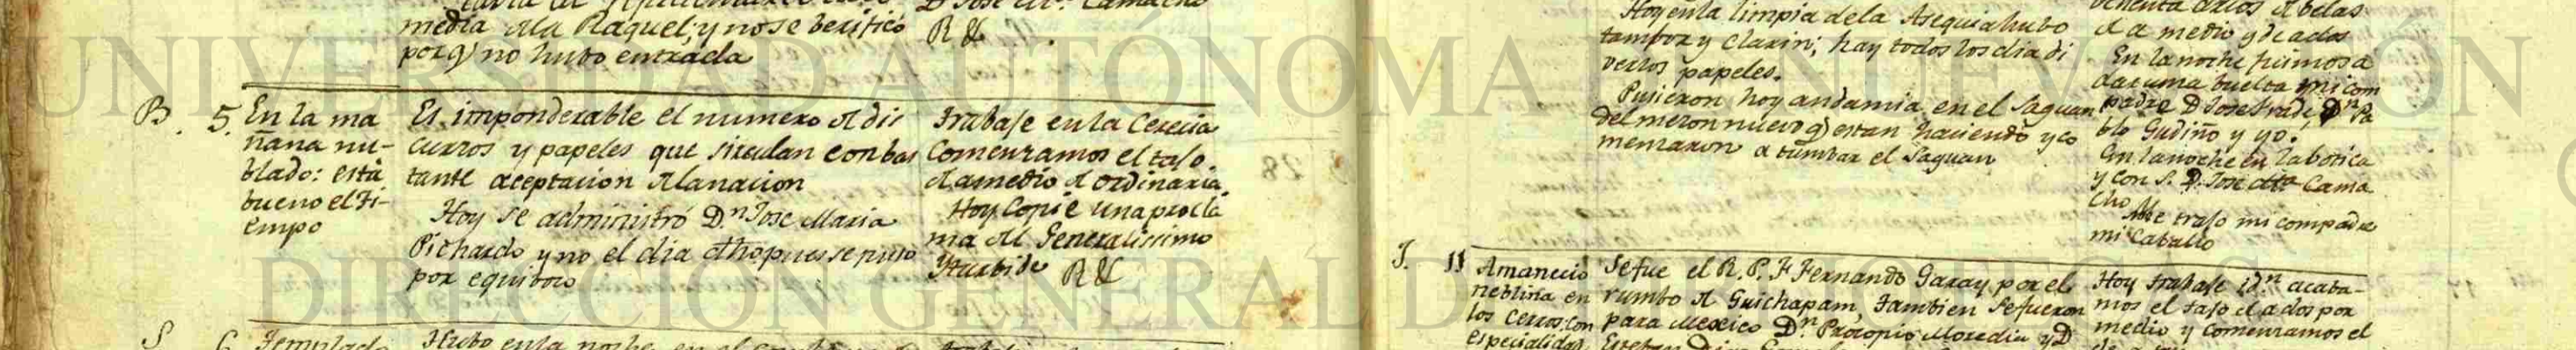 media ala Raquel; y no se berificó
porq) no hubo entrada
D Jose Mª. Camacho
R &
B. 5. En la ma
ñana nu-
blado: está
bueno el ti-
empo
Es imponderable el numero d dis
cursos y papeles que sirculan con bas
tante aceptacion d la nacion
Hoy se administró D.n Jose Maria
Pichardo y no el dia
por equiboco
trabaje en la Cereria
Comenzamos el tajo.
d a medio d ordinaria.
Hoy Copié una procla
ma del Generalissimo
Yturbide R &
S 6 Templado
Hubo en la noche en el
Hoy en la limpia de la Asequia hubo
tambor y clarin; hay todos los dia di
versos papeles.
Pusieron hoy andamia en el Saguan
del meson nuevo q) estan haciendo y co
menzaron a tumbar el Saguan
d a medio y de a dos
En la noche fuimos a
dar una buelta mi com
padre D Jose Frade, D.n Pa
blo Gudiño y yo.
En la noche en la botica
y con S. D. Jose Mª Cama
cho
Me trajo mi compadre
mi Caballo
J. 11 Amanecio
neblina en
los cerros con
especialidad
Se fue el R. P. F Fernando Garay por el
rumbo d Guichapam, tambien se fueron
para Mexico D.n Procopio Moredia y D
Esteban
Hoy trabaje id.n acaba-
mos el tajo d a dos por
medio y comenzamos el
UNIVERSIDAD AUTÓNOMA DE NUEVO LEÓN
DIRECCIÓN GENERAL DE BIBLIOTECAS